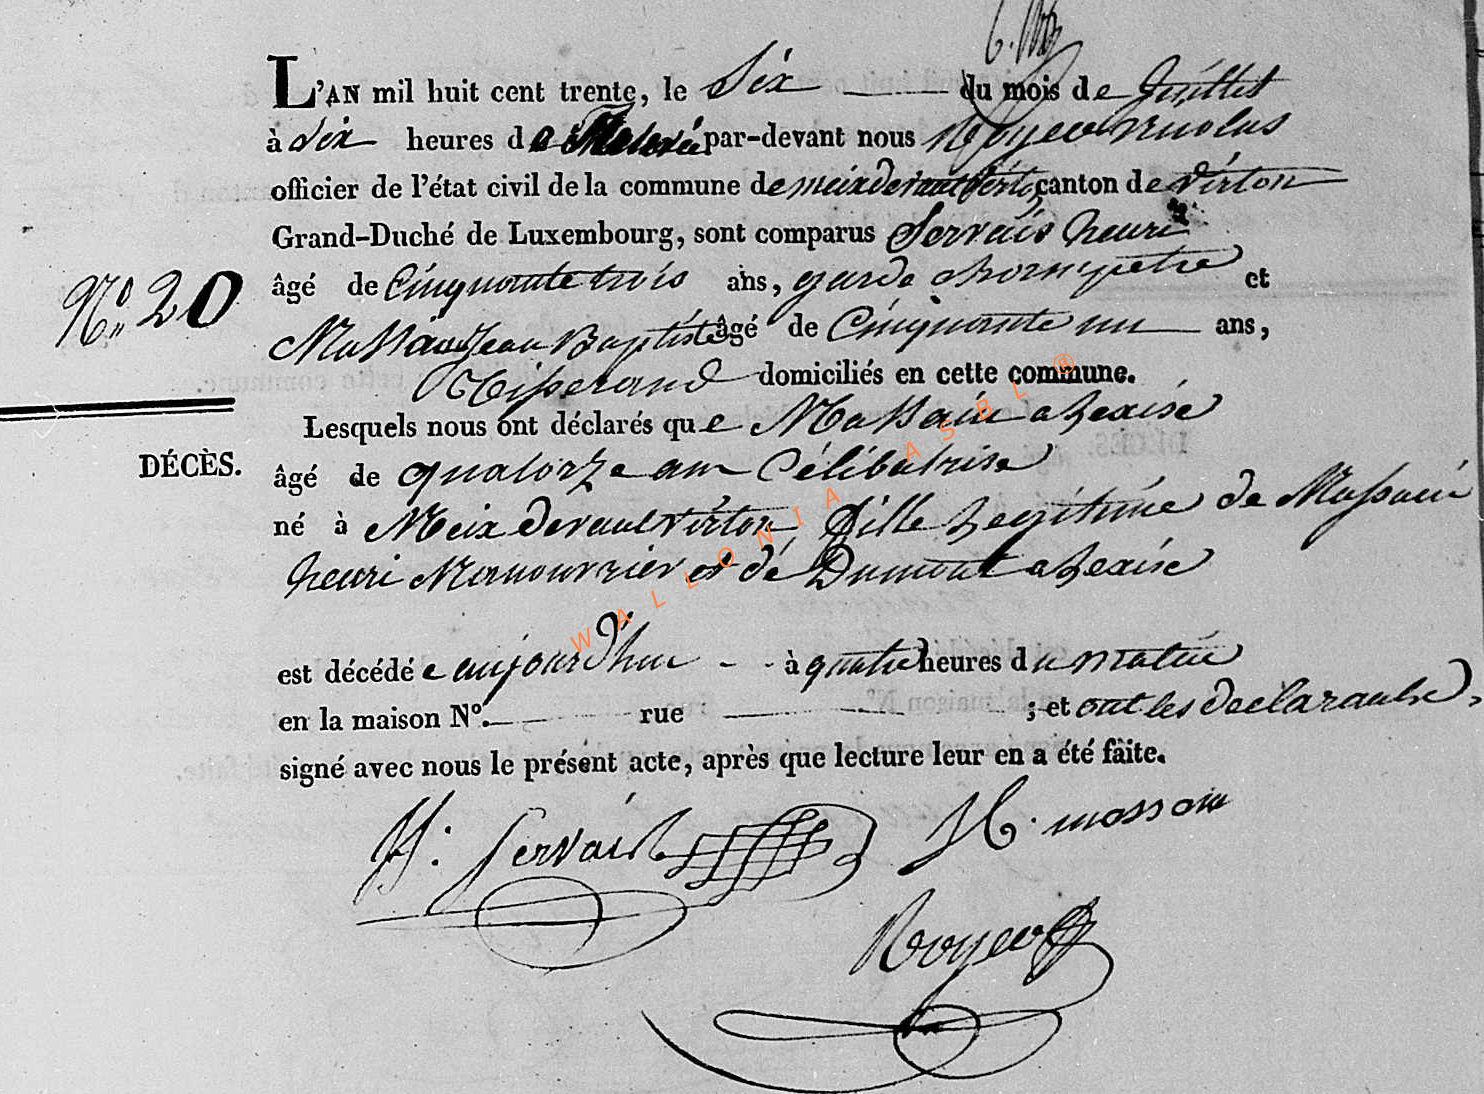 L'AN mil huit cent trente, le Six du mois de Juillet
à Six heures de par-devant nous Royer nicolas
officier de l'état civil de la commune de meix devant virton, canton de virton
Grand-Duché de Luxembourg, sont comparus Servais henri
âgé de Cinquante trois ans, garde champetre et
No. 20
Massain Jean Baptiste âgé de Cinquante un ans,
Tisserand domiciliés en cette commune.
Lesquels nous ont déclarés que Massain alexise
DÉCÈS.
âgé de quatorze ans Célibatrise
né à Meix devant virton, fille Legitime de Massain
henri Manouvrier et de Dumont alexise
est décédée aujourd'hui à quatre heures du matin
en la maison No. rue ; et ont les declarants
signé avec nous le présent acte, après que lecture leur en a été fàite.
H. Servais H. massain
Royer
WALLONIA ASBL ®